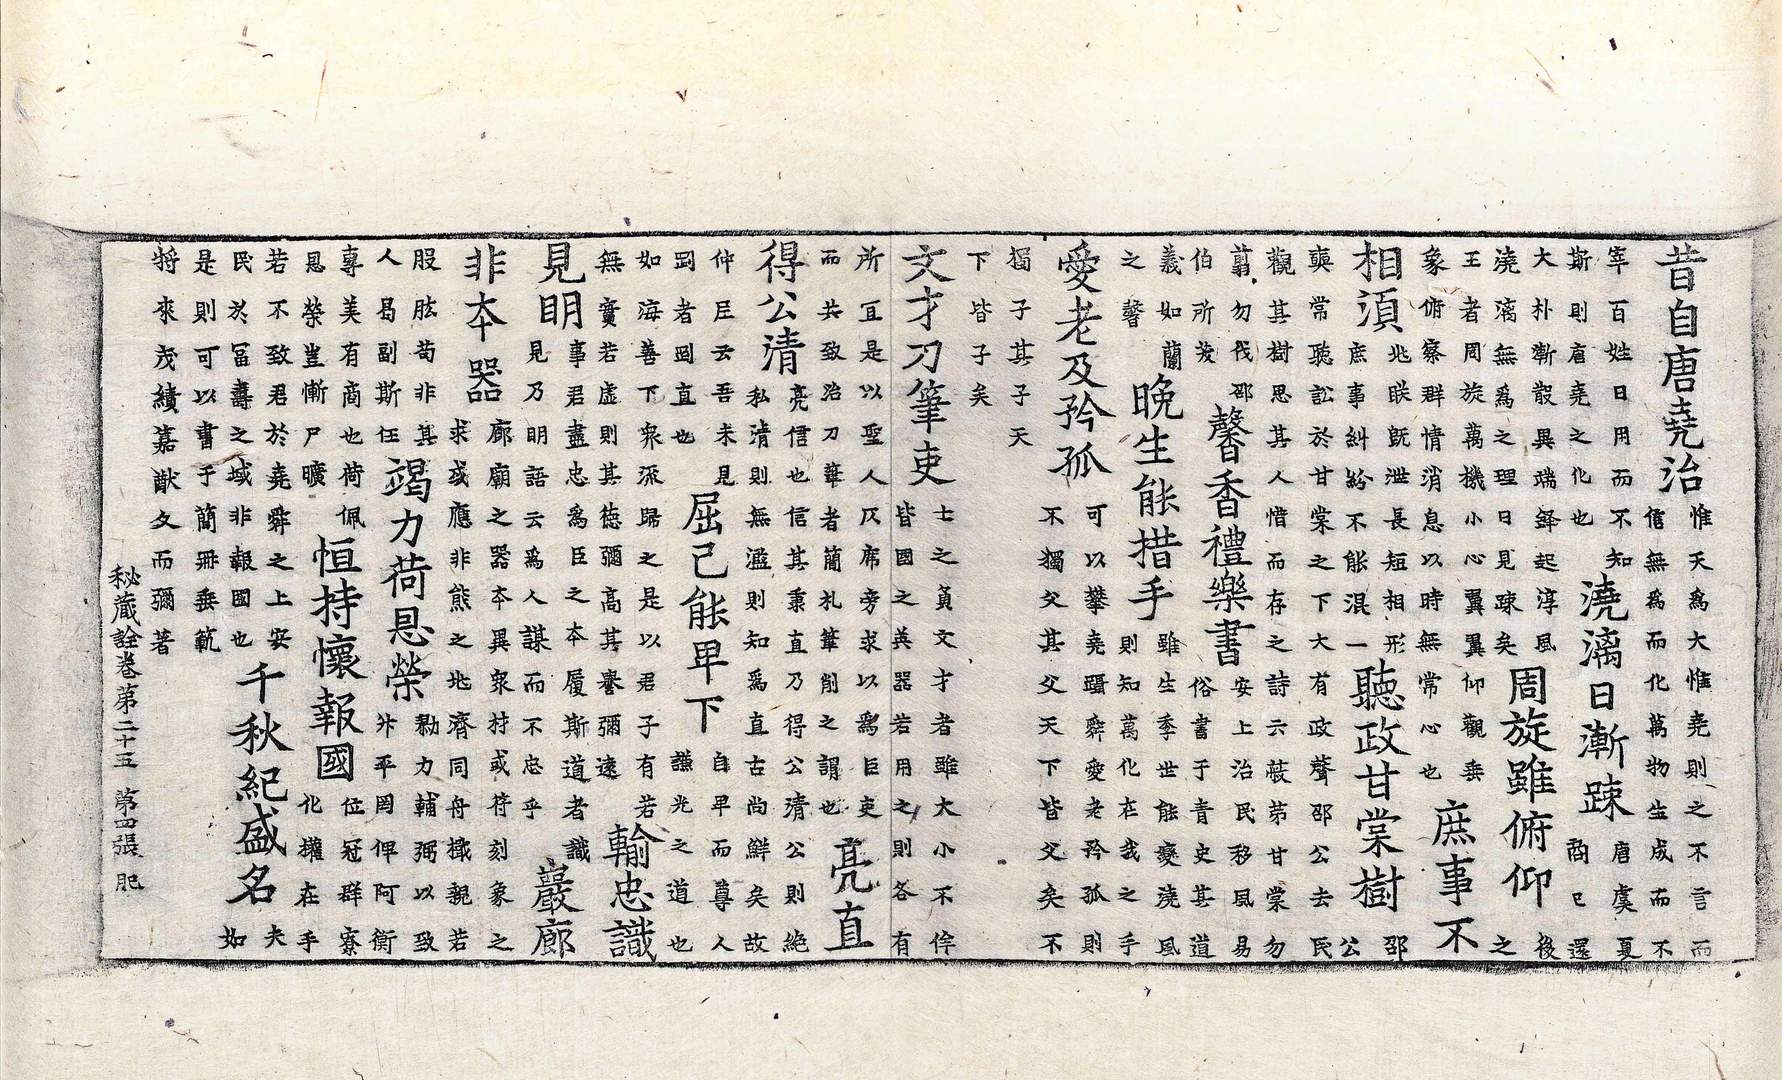 昔自唐堯治
惟天爲大惟堯則之不言而
信無爲而化萬物生成而不
宰百姓日用而不知
斯則唐堯之化也
澆漓日漸踈
唐虞夏
商已還
大朴漸散異端鋒起淳風
澆漓無爲之理日見踈矣
周旋雖俯仰
後
之
王者周旋萬機小心翼翼仰觀垂
象俯察群情消息以時無常心也
庶事不
相須
兆眹既泄長短相形
庶事糾紛不能混一
聽政甘棠樹
邵
公
奭常聽訟於甘棠之下大有政聲邵公去民
觀其樹思其人惜而存之詩云蔽芾甘棠勿
翦勿伐邵
伯所茇
馨香禮樂書
安上治民移風易
俗書于青史甚道
義如蘭
之馨
晚生能措手
雖生季世能變澆風
則知萬化在我之手
愛老及矜孤
可以攀堯躡舜愛老矜孤則
不獨父其父天下皆父矣不
獨子其子天
下皆子矣
文才刀筆吏
士之負文才者雖大小不侔
皆國之英器若用之則各有
所宜是以聖人仄席旁求以爲臣吏
而共致治刀筆者簡札筆削之謂也
亮直
得公清
亮信也信其秉直乃得公清公則絶
私清則無濫則知爲直古尚鮮矣故
仲尼云吾未見
剛者剛直也
屈己能卑下
自卑而尊人
謙光之道也
如海善下衆派歸之是以君子有若
無實若虛則其德彌高其譽彌遠
輸忠識
見明
事君盡忠爲臣之本履斯道者識
見乃明語云爲人謀而不忠乎
巖廊
非本器
廊廟之器本異衆材或符刻象之
求或應非熊之兆濟同舟檝親若
股肱苟非其
人曷副斯任
竭力荷恩榮
勠力輔弼以致
升平罔俾阿衡
專美有商也荷佩
恩榮豈慚尸曠
恒持懷報國
位冠群寮
化權在手
若不致君於堯舜之上安
民於富壽之域非報國也
千秋紀盛名
夫
如
是則可以書于簡冊垂範
將來茂績嘉猷久而彌著
秘蔵詮卷第二十五 第四張 肥